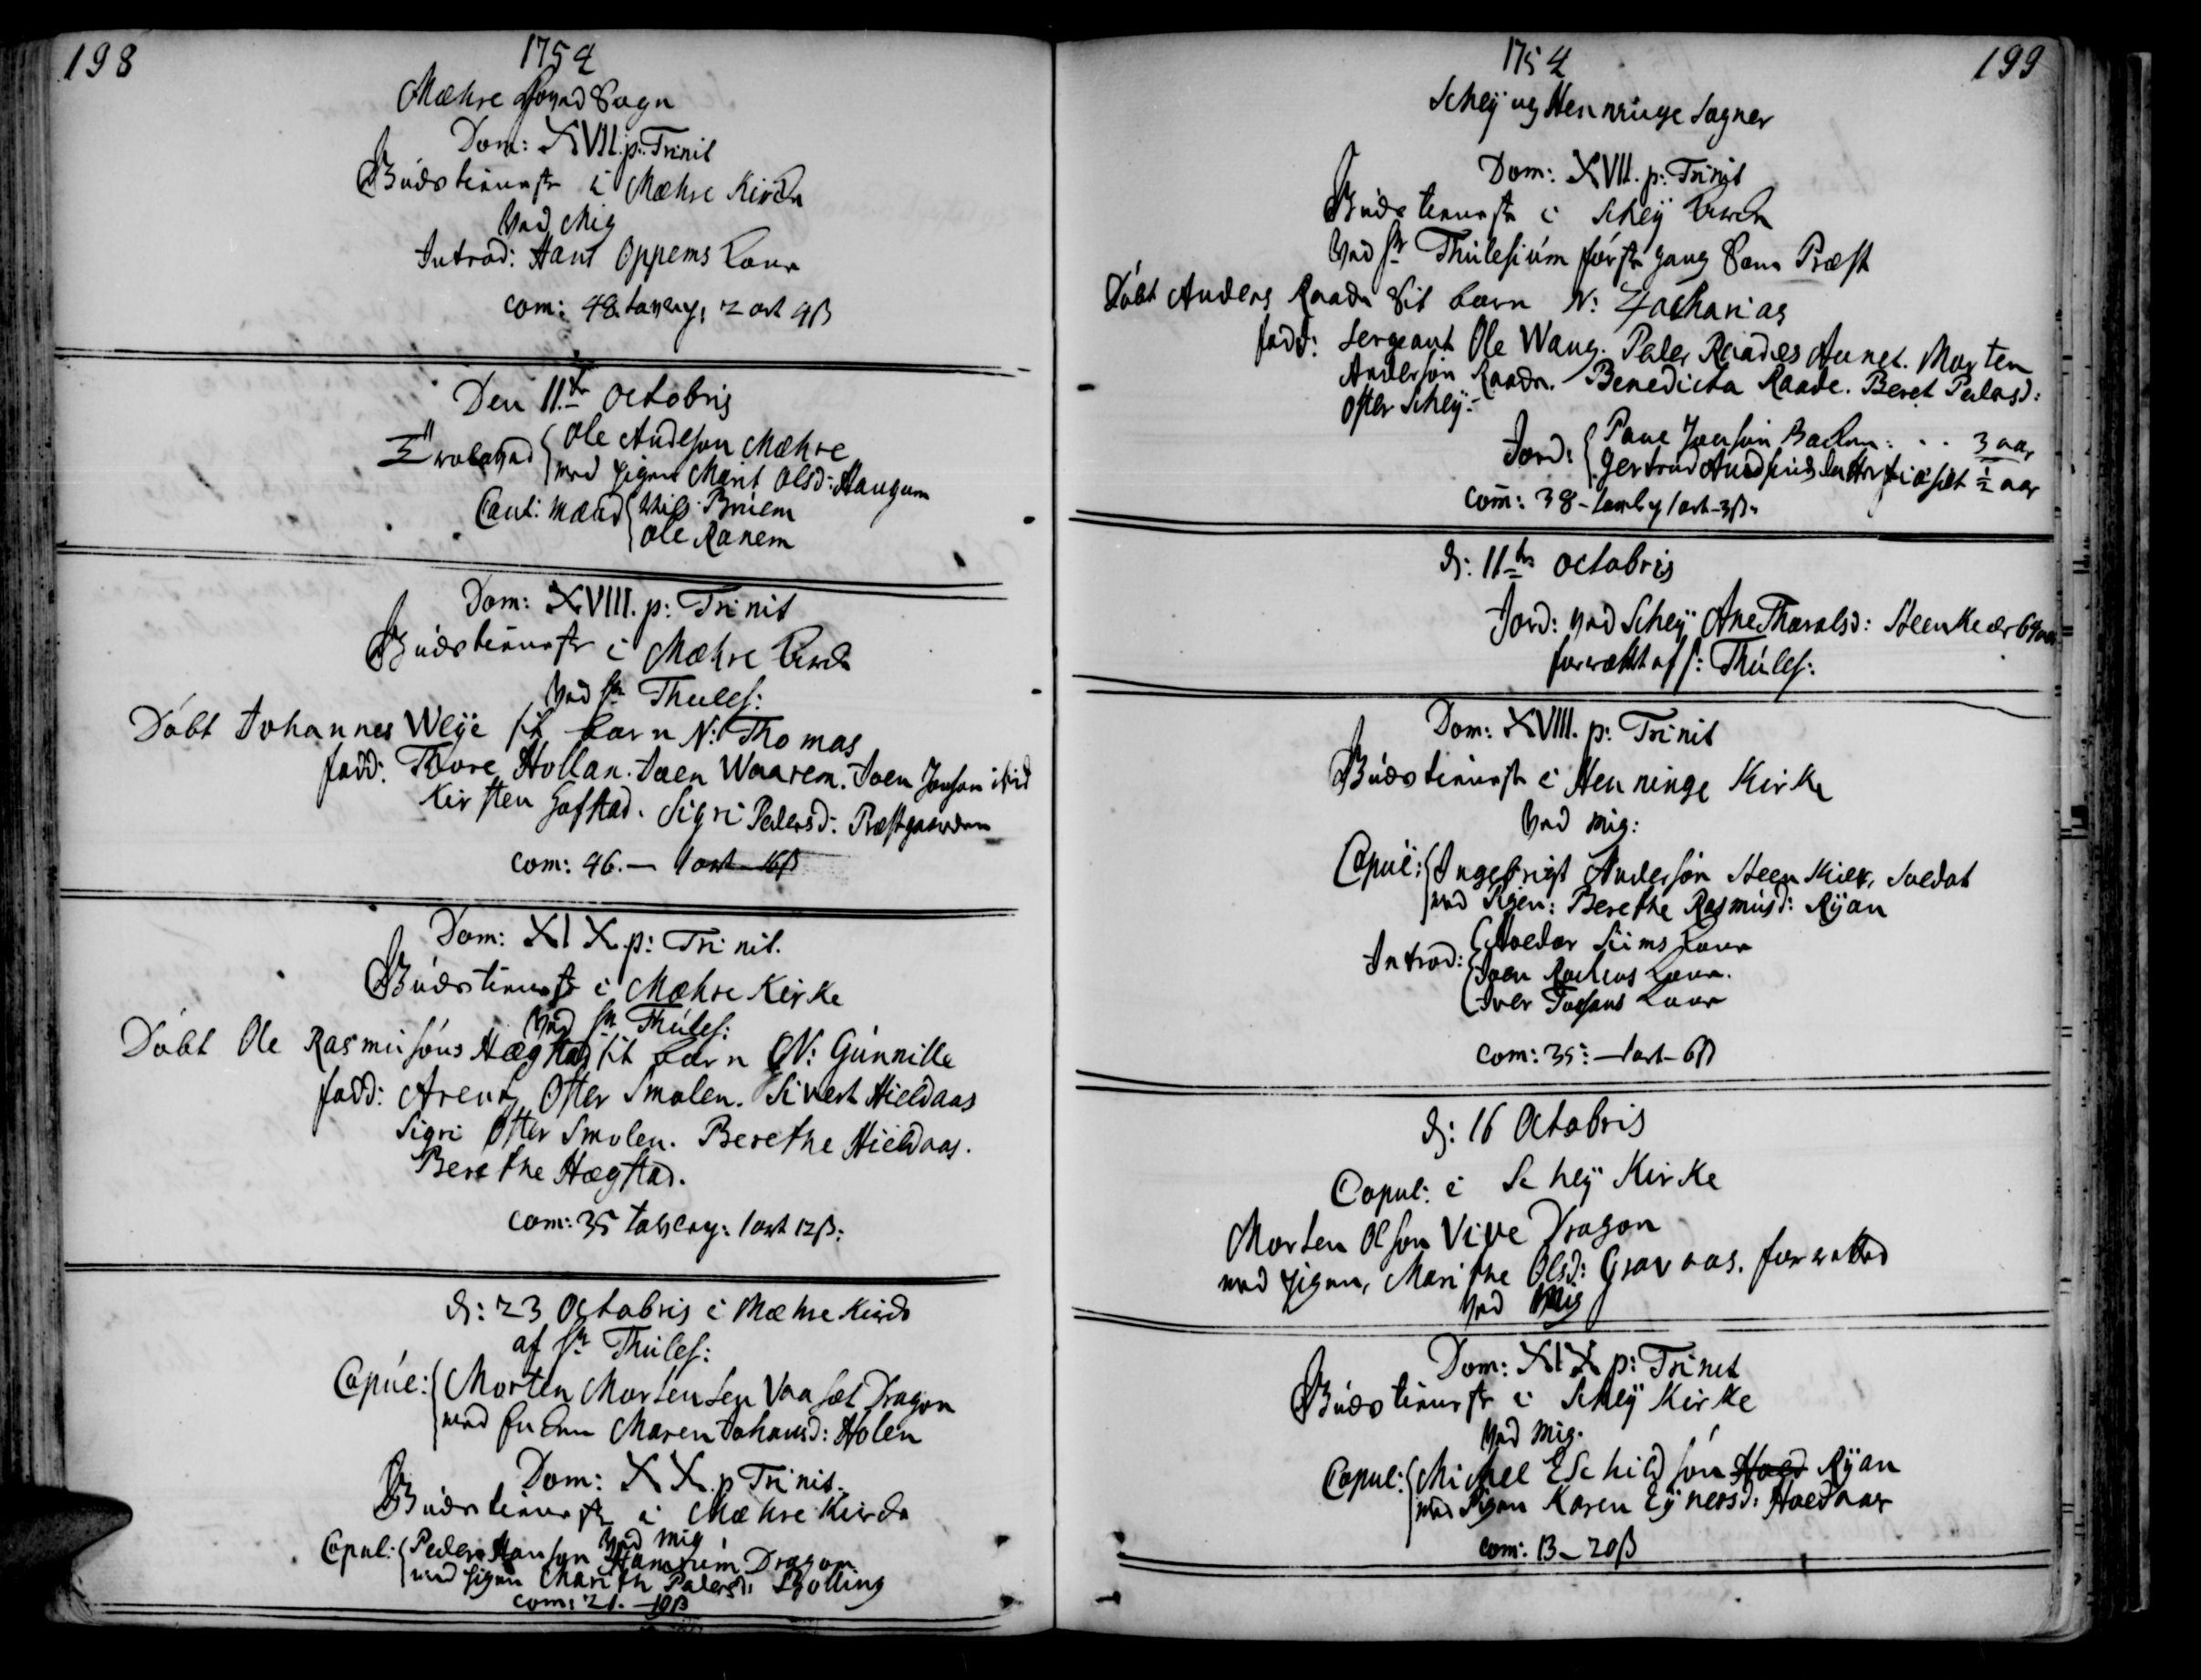 198
1754
Mæhre Hoved Sogn
Dom: XVII. p: Trinit
Gudstieneste i Mæhre Kirche
Ved Mig
Introd: Hans Oppems Kone
com: 48. 2 ort 4ß
Den 11te Octobris
Ole Andesøn Mæhre
med Pigen Marit Olsd: Haugum
Caut: Mænd Nils Bruem
Ole Ranem
Dom: XVIII. p: Trinit
Gudstieneste i Mæhre Kirche
Ved Hr Thules:
Døbt Johannes Weÿe sit barn N: Thomas
fadd: Thore Hollan. Joen Waarem. Joen Jonsøn
Kirsten Gofstad. Sigri Pedersd: Præstgaarden
com: 46. — 1 ort 16ß
Dom: XIX p: Trinit.
Gudstieneste i Mæhre Kirke
Ved Hr Thules:
Døbt Ole Rasmusøns Hægstad sit barn N: Gunnille
fadd: Arent Øster Smolen. Sivert Hieldaas
Sigri Øster Smolen. Berethe Hieldaas.
Berethe Hægstad.
com: 35 1 ort 12ß:
d: 23 Octobris i Mæhre Kirche
af Hr Thules:
Copul: Morten Mortensen Vaaset Dragon
med Enken Maren Johansd: Holen
Dom: XX. p Trinit.
Gudstieneste i Mæhre Kirche
Ved Mig
Copul: Peder Hansøn Hamrum Dragon
med Pigen Marith Pedersd:
com: 21. — 10ß
1754
199
Scheÿ og Henninge Sogner
Dom: XVII. p: Trinit
Gudstieneste i Scheÿ Kirche
Ved Hr Thulesium første gang Som Præst
Døbt Anders Raade Sit barn N: Zacharias
fadd: Sergeant Ole Wang. Peder Raades Annet. Morten
Andersøn Raade. Benedicta Raade. Beret Pedersd:
Øster Scheÿ:
Jord: Pane Joensøn 3 aar
Gertrud ½ aar
com: 38 1 ort 3ß
d: 11te octobris
Jord: ved Scheÿ Ane Tharalsd: Steenkier
forrættet af Hr: Thules:
Dom: XVIII. p: Trinit
Gudstieneste i Henninge Kirke
Ved Mig:
Copul: Ingebrigt Andersøn Steenkier, Soldat
med Pigen: Berethe Rasmusd: Rÿan
Introd: Kone
Joen Kone.
Iver Kone
com: 35: — 1 ort — 6ß
d: 16 Octobris
Copul: i Scheÿ Kirke
Morten Olsøn Vive Dragon
med Pigen, Marithe Olsd: Gravaas. forrættet
ved Mig
Dom: XIX p: Trinit
Gudstieneste i Scheÿ Kirke
Ved Mig.
Copul: Michel Eschildsøn Rÿan
med Pigen Karen Eÿnersd:
com: 13 — 20ß